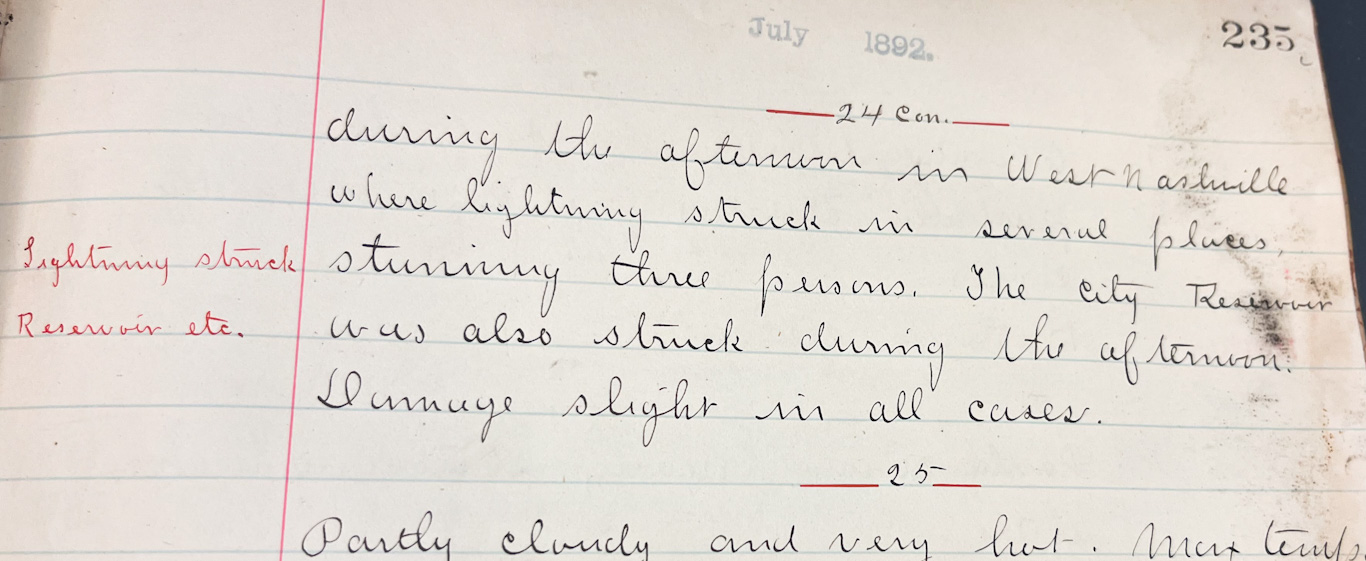 July 1892.
235
24 Con.
during the afternoon in West Nashville
where lightning struck in several places,
Lightning struck
stunning three persons. The city Reservoir
Reservoir etc.
was also struck during the afternoon.
Damage slight in all cases.
25
Partly cloudy and very hot. Max temp.